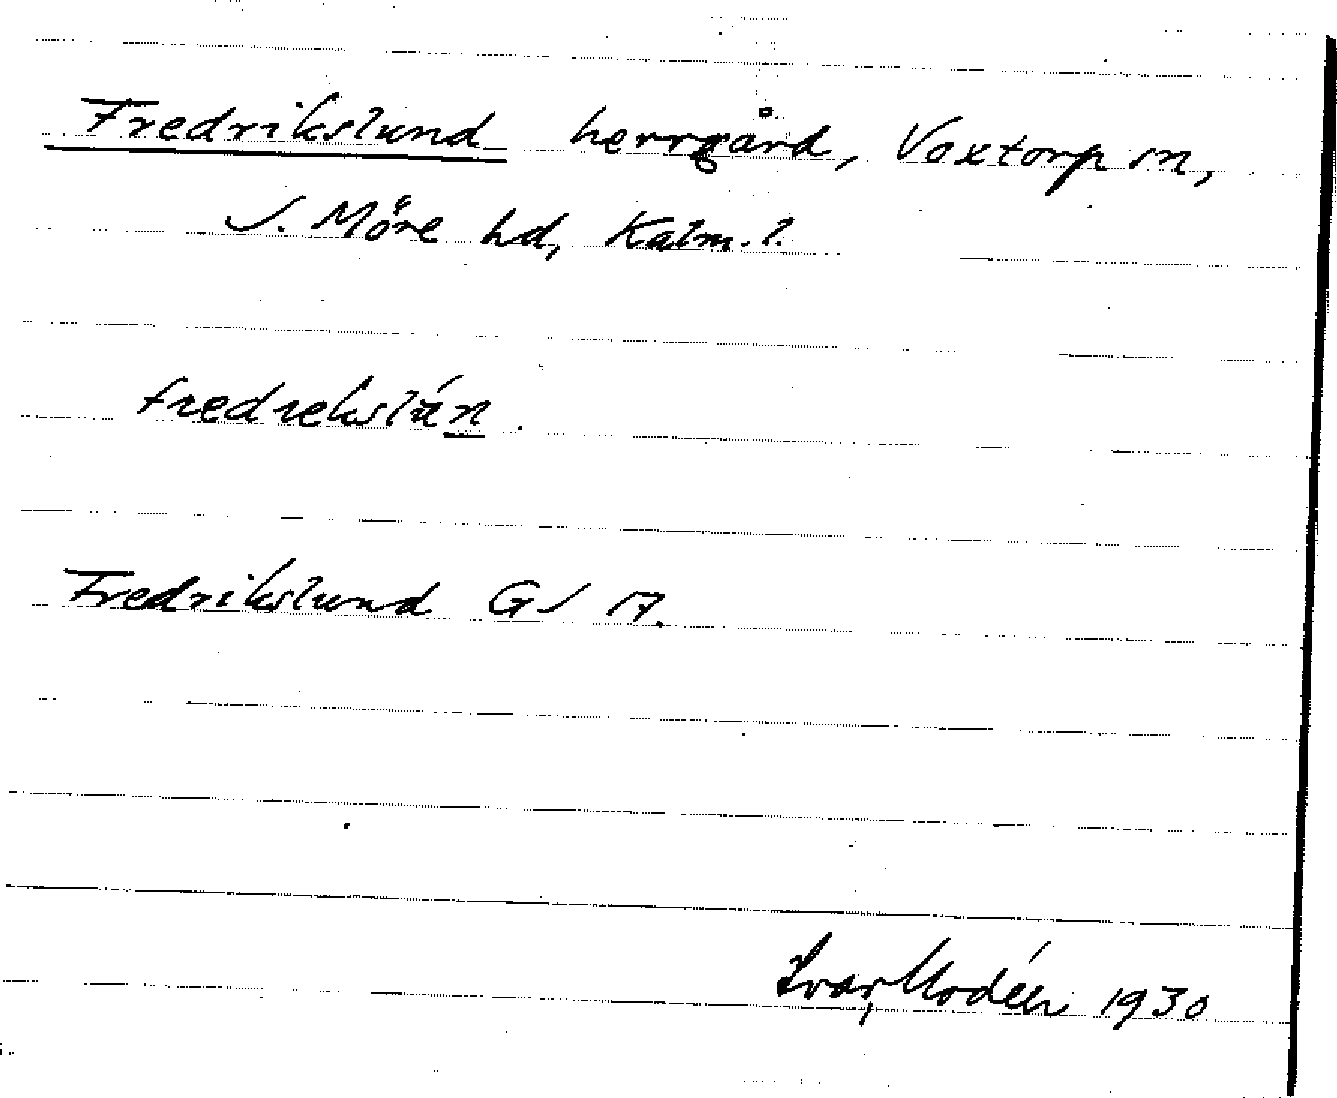 Fredrikslund herrgård, Voxtorp sn,
S. Möre hd, Kalm. l.
fredrekslún.
Fredrikslund GS 17.
Ivar Modéer 1930